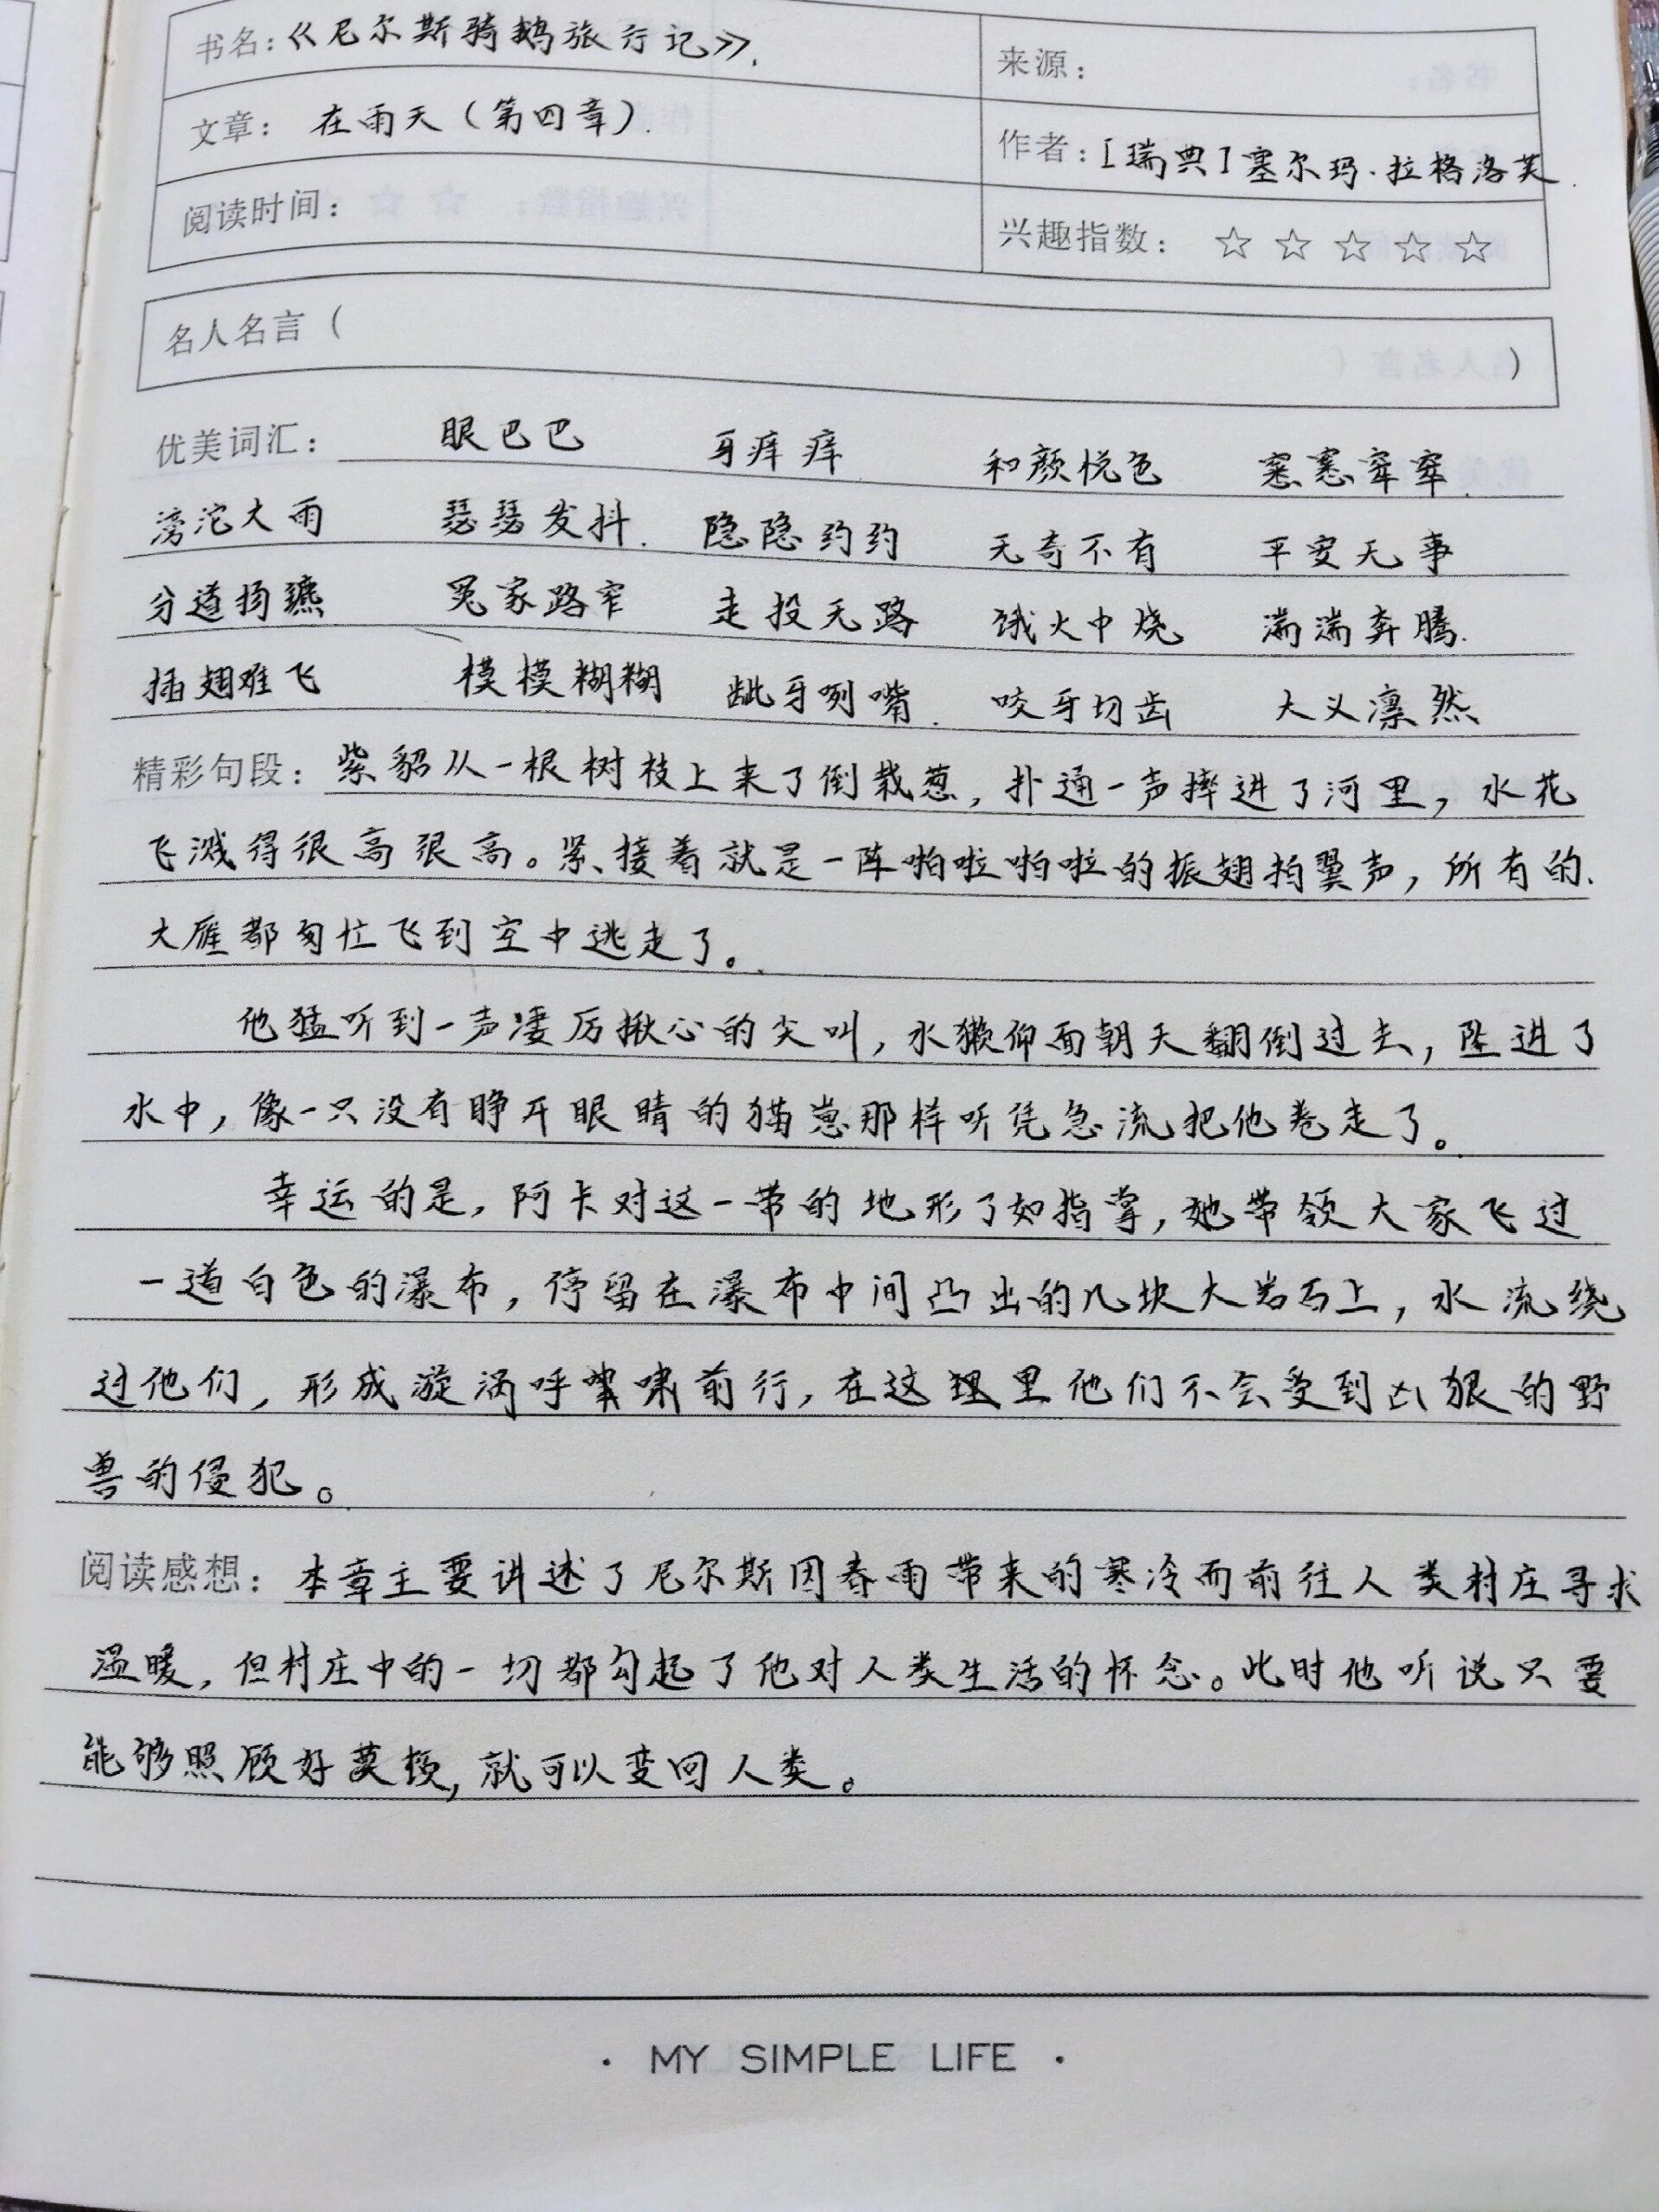 书名：《尼尔斯骑鹅旅行记》.
来源：
文章： 在雨天（第四章）.
作者：[瑞典]塞尔玛·拉格洛芙.
阅读时间：
兴趣指数： ☆ ☆ ☆ ☆ ☆
名人名言（ ）
优美词汇： 眼巴巴 牙痒痒 和颜悦色 窸窸窣窣.
滂沱大雨 瑟瑟发抖. 隐隐约约 无奇不有 平安无事
分道扬镳 冤家路窄 走投无路 饿火中烧 湍湍奔腾.
插翅难飞 模模糊糊 龇牙咧嘴. 咬牙切齿 大义凛然
精彩句段：紫貂从一根树枝上来了倒栽葱，扑通一声摔进了河里，水花
飞溅得很高很高。紧接着就是一阵啪啦啪啦的振翅拍翼声，所有的
大雁都匆忙飞到空中逃走了。
他猛听到一声凄厉揪心的尖叫，水獭仰面朝天翻倒过去，坠进了
水中，像一只没有睁开眼睛的猫崽那样听凭急流把他卷走了。
幸运的是，阿卡对这一带的地形了如指掌，她带领大家飞过
一道白色的瀑布，停留在瀑布中间凸出的几块大岩石上，水流绕
过他们，形成漩涡呼啸前行，在这里他们不会受到凶狠的野
兽的侵犯。
阅读感想：本章主要讲述了尼尔斯因春雨带来的寒冷而前往人类村庄寻求
温暖，但村庄中的一切都勾起了他对人类生活的怀念。此时他听说只要
能够照顾好莫顿，就可以变回人类。
· MY SIMPLE LIFE ·